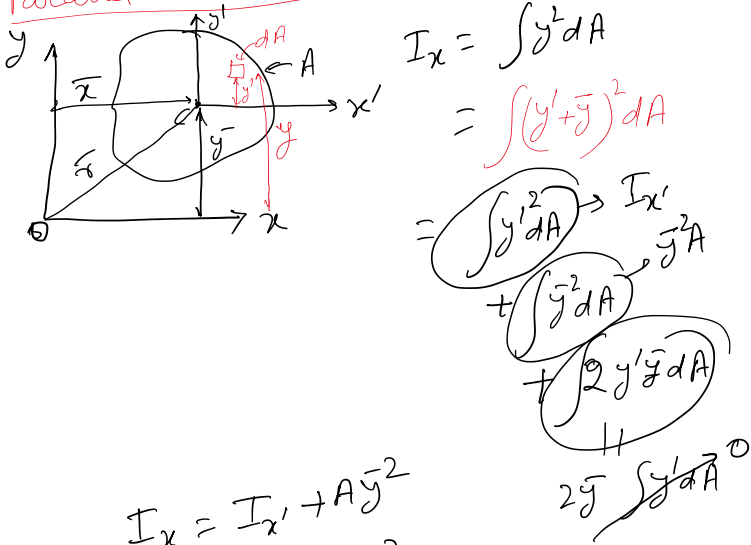 y
y'
dA
A
x̄
y'
x'
C
ȳ
y
r̄
x
O
I_x = ∫y²dA
= ∫(y'+ȳ)²dA
= ∫y'²dA → I_x'
+ ∫ȳ²dA → ȳ²A
+ ∫2y'ȳdA
||
2ȳ ∫y'dA → 0
I_x = I_x' + Aȳ²